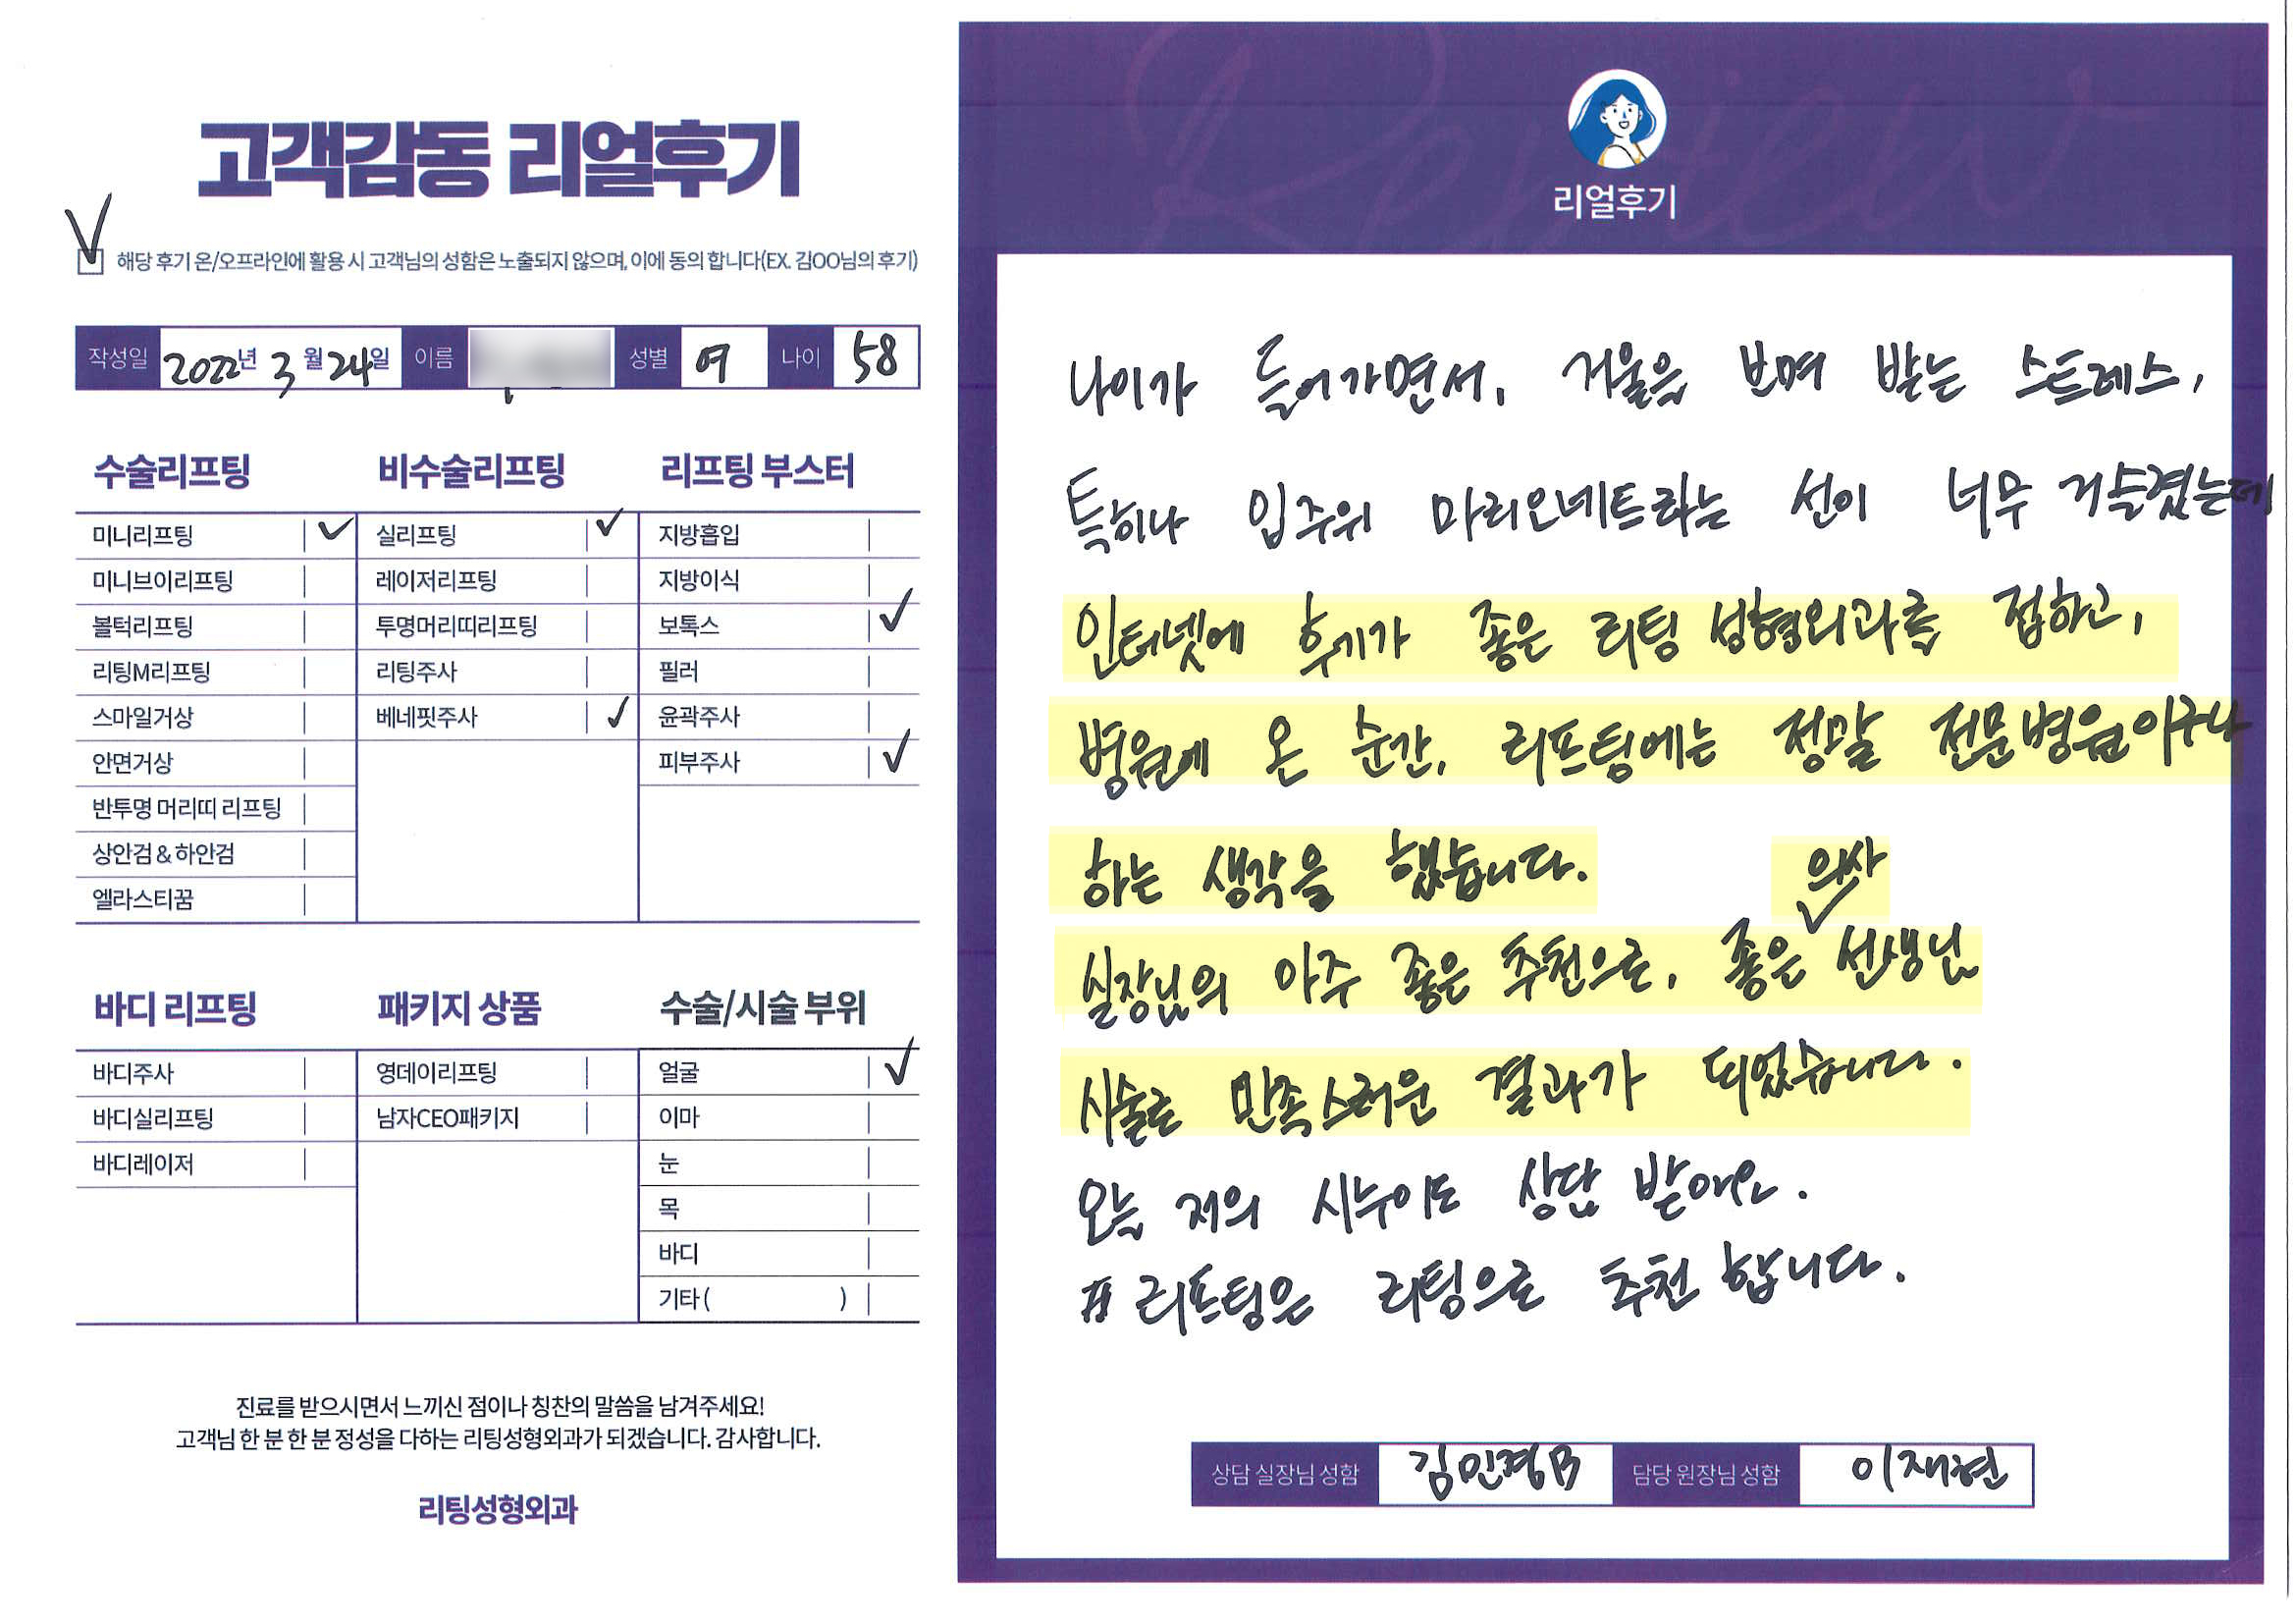 고객감동 리얼후기
✓ 해당 후기 온/오프라인에 활용 시 고객님의 성함은 노출되지 않으며, 이에 동의 합니다(EX. 김OO님의 후기)
작성일 2022년 3월 24일 이름 성별 여 나이 58
수술리프팅
미니리프팅 ✓
미니브이리프팅
볼턱리프팅
리팅M리프팅
스마일거상
안면거상
반투명 머리띠 리프팅
상안검 & 하안검
엘라스티꿈
비수술리프팅
실리프팅 ✓
레이저리프팅
투명머리띠리프팅
리팅주사
베네핏주사 ✓
리프팅 부스터
지방흡입
지방이식
보톡스 ✓
필러
윤곽주사
피부주사 ✓
바디 리프팅
바디주사
바디실리프팅
바디레이저
패키지 상품
영데이리프팅
남자CEO패키지
수술/시술 부위
얼굴 ✓
이마
눈
목
바디
기타 ( )
진료를 받으시면서 느끼신 점이나 칭찬의 말씀을 남겨주세요!
고객님 한 분 한 분 정성을 다하는 리팅성형외과가 되겠습니다. 감사합니다.
리팅성형외과
Review
리얼후기
나이가 들어가면서, 거울을 보며 받는 스트레스,
특히나 입주위 마리오네트라는 선이 너무 거슬렸는데
인터넷에 후기가 좋은 리팅 성형외과를 접하고,
병원에 온 순간, 리프팅에는 정말 전문병원이구나
하는 생각을 했습니다.
의사
실장님의 아주 좋은 추천으로, 좋은 ✓ 선생님
시술로 만족스러운 결과가 되었습니다.
오늘 저의 시누이도 상담 받아요.
# 리프팅은 리팅으로 추천 합니다.
상담 실장님 성함 김민경B 담당 원장님 성함 이재현